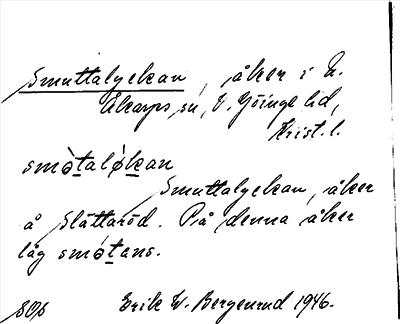 Smuttalyckan, åker i N.
Åkarps sn, V. Göinge hd,
Krist. l.
smòtaløkan
Smuttalyckan, åker
å Slättaröd. På denna åker
låg smótans.
Erik W. Bergenrud 1946.